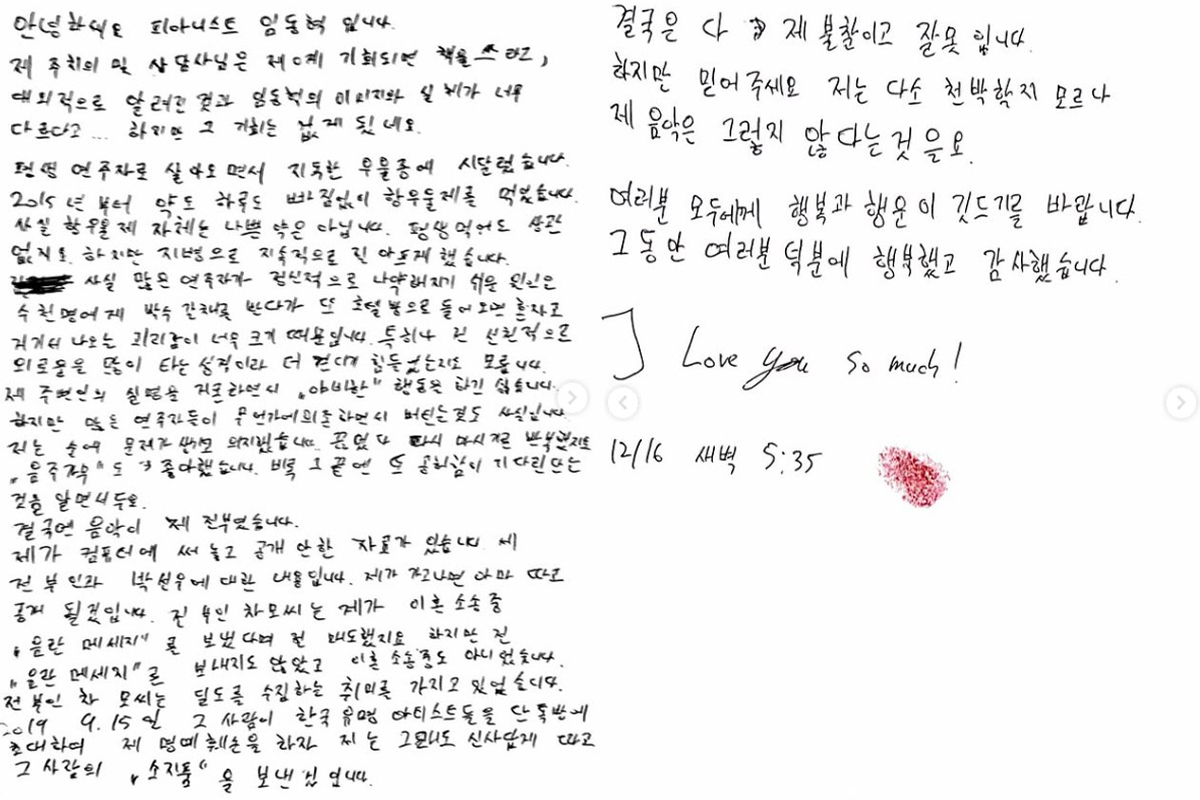 안녕하세요 피아니스트 임동혁 입니다.
제 주치의 및 상담사님은 제게 기회되면 책을 쓰라고,
대외적으로 알려진 것과 임동혁의 이미지와 실체가 너무
다르다고... 하지만 그 기회는 없게 됬네요.
평생 연주자로 살아오면서 지독한 우울증에 시달렸습니다.
2015년 부터 약도 하루도 빠짐없이 항우울제를 먹었습니다.
사실 항우울제 자체는 나쁜 약은 아닙니다. 평생 먹어도 상관
없지요. 하지만 지병으로 지속적으로 전 아프게 했습니다.
사실 많은 연주자가 정신적으로 나약해지기 쉬운 원인은
수천명에게 박수 갈채를 받다가 또 호텔 방으로 들어오면 혼자고
거기서 나오는 괴리감이 너무 크기 때문입니다. 특히나 전 선천적으로
외로움을 많이 타는 성격이라 더 견디기 힘들었는지도 모릅니다.
제 주변인의 실명을 거론하면서 „야비한“ 행동은 하긴 싫습니다.
하지만 많은 연주자들이 무언가에 의존하면서 버틴는것도 사실입니다.
저는 술에 문제가 생겨 의지했습니다. 끊었다 다시 마시기를 반복했지요
„음주가무“도 좋아했습니다. 비록 그 끝엔 또 공허함이 기다린다는
것을 알면서두요.
결국엔 음악이 제 전부였습니다.
제가 컴퓨터에 써 놓고 공개 안한 자료가 있습니다. 제
전 부인과 박선우에 대한 내용입니다. 제가 가고나면 아마 따로
공개 될것입니다. 전 부인 차모씨는 제가 이혼 소송 중
„음란 메세지“를 보냈다며 절 매도했지요 하지만 전
„음란 메세지“를 보내지도 않았고 이혼 소송중도 아니었습니다.
전부인 차 모씨는 딜도를 수집하는 취미를 가지고 있었습니다.
2019 9.15일 그 사람이 한국 유명 아티스트들을 단톡방에
초대하여 제 명예훼손을 하자 저는 그래도 신사답게 따로
그 사람의 „소지품“을 보낸 겁니다.
결국은 다 제 불찰이고 잘못 입니다.
하지만 믿어주세요 저는 다소 천박할지 모르나
제 음악은 그렇지 않다는 것을요.
여러분 모두에게 행복과 행운이 깃드기를 바랍니다.
그동안 여러분 덕분에 행복했고 감사했습니다.
I Love you so much!
12/16 새벽 5:35